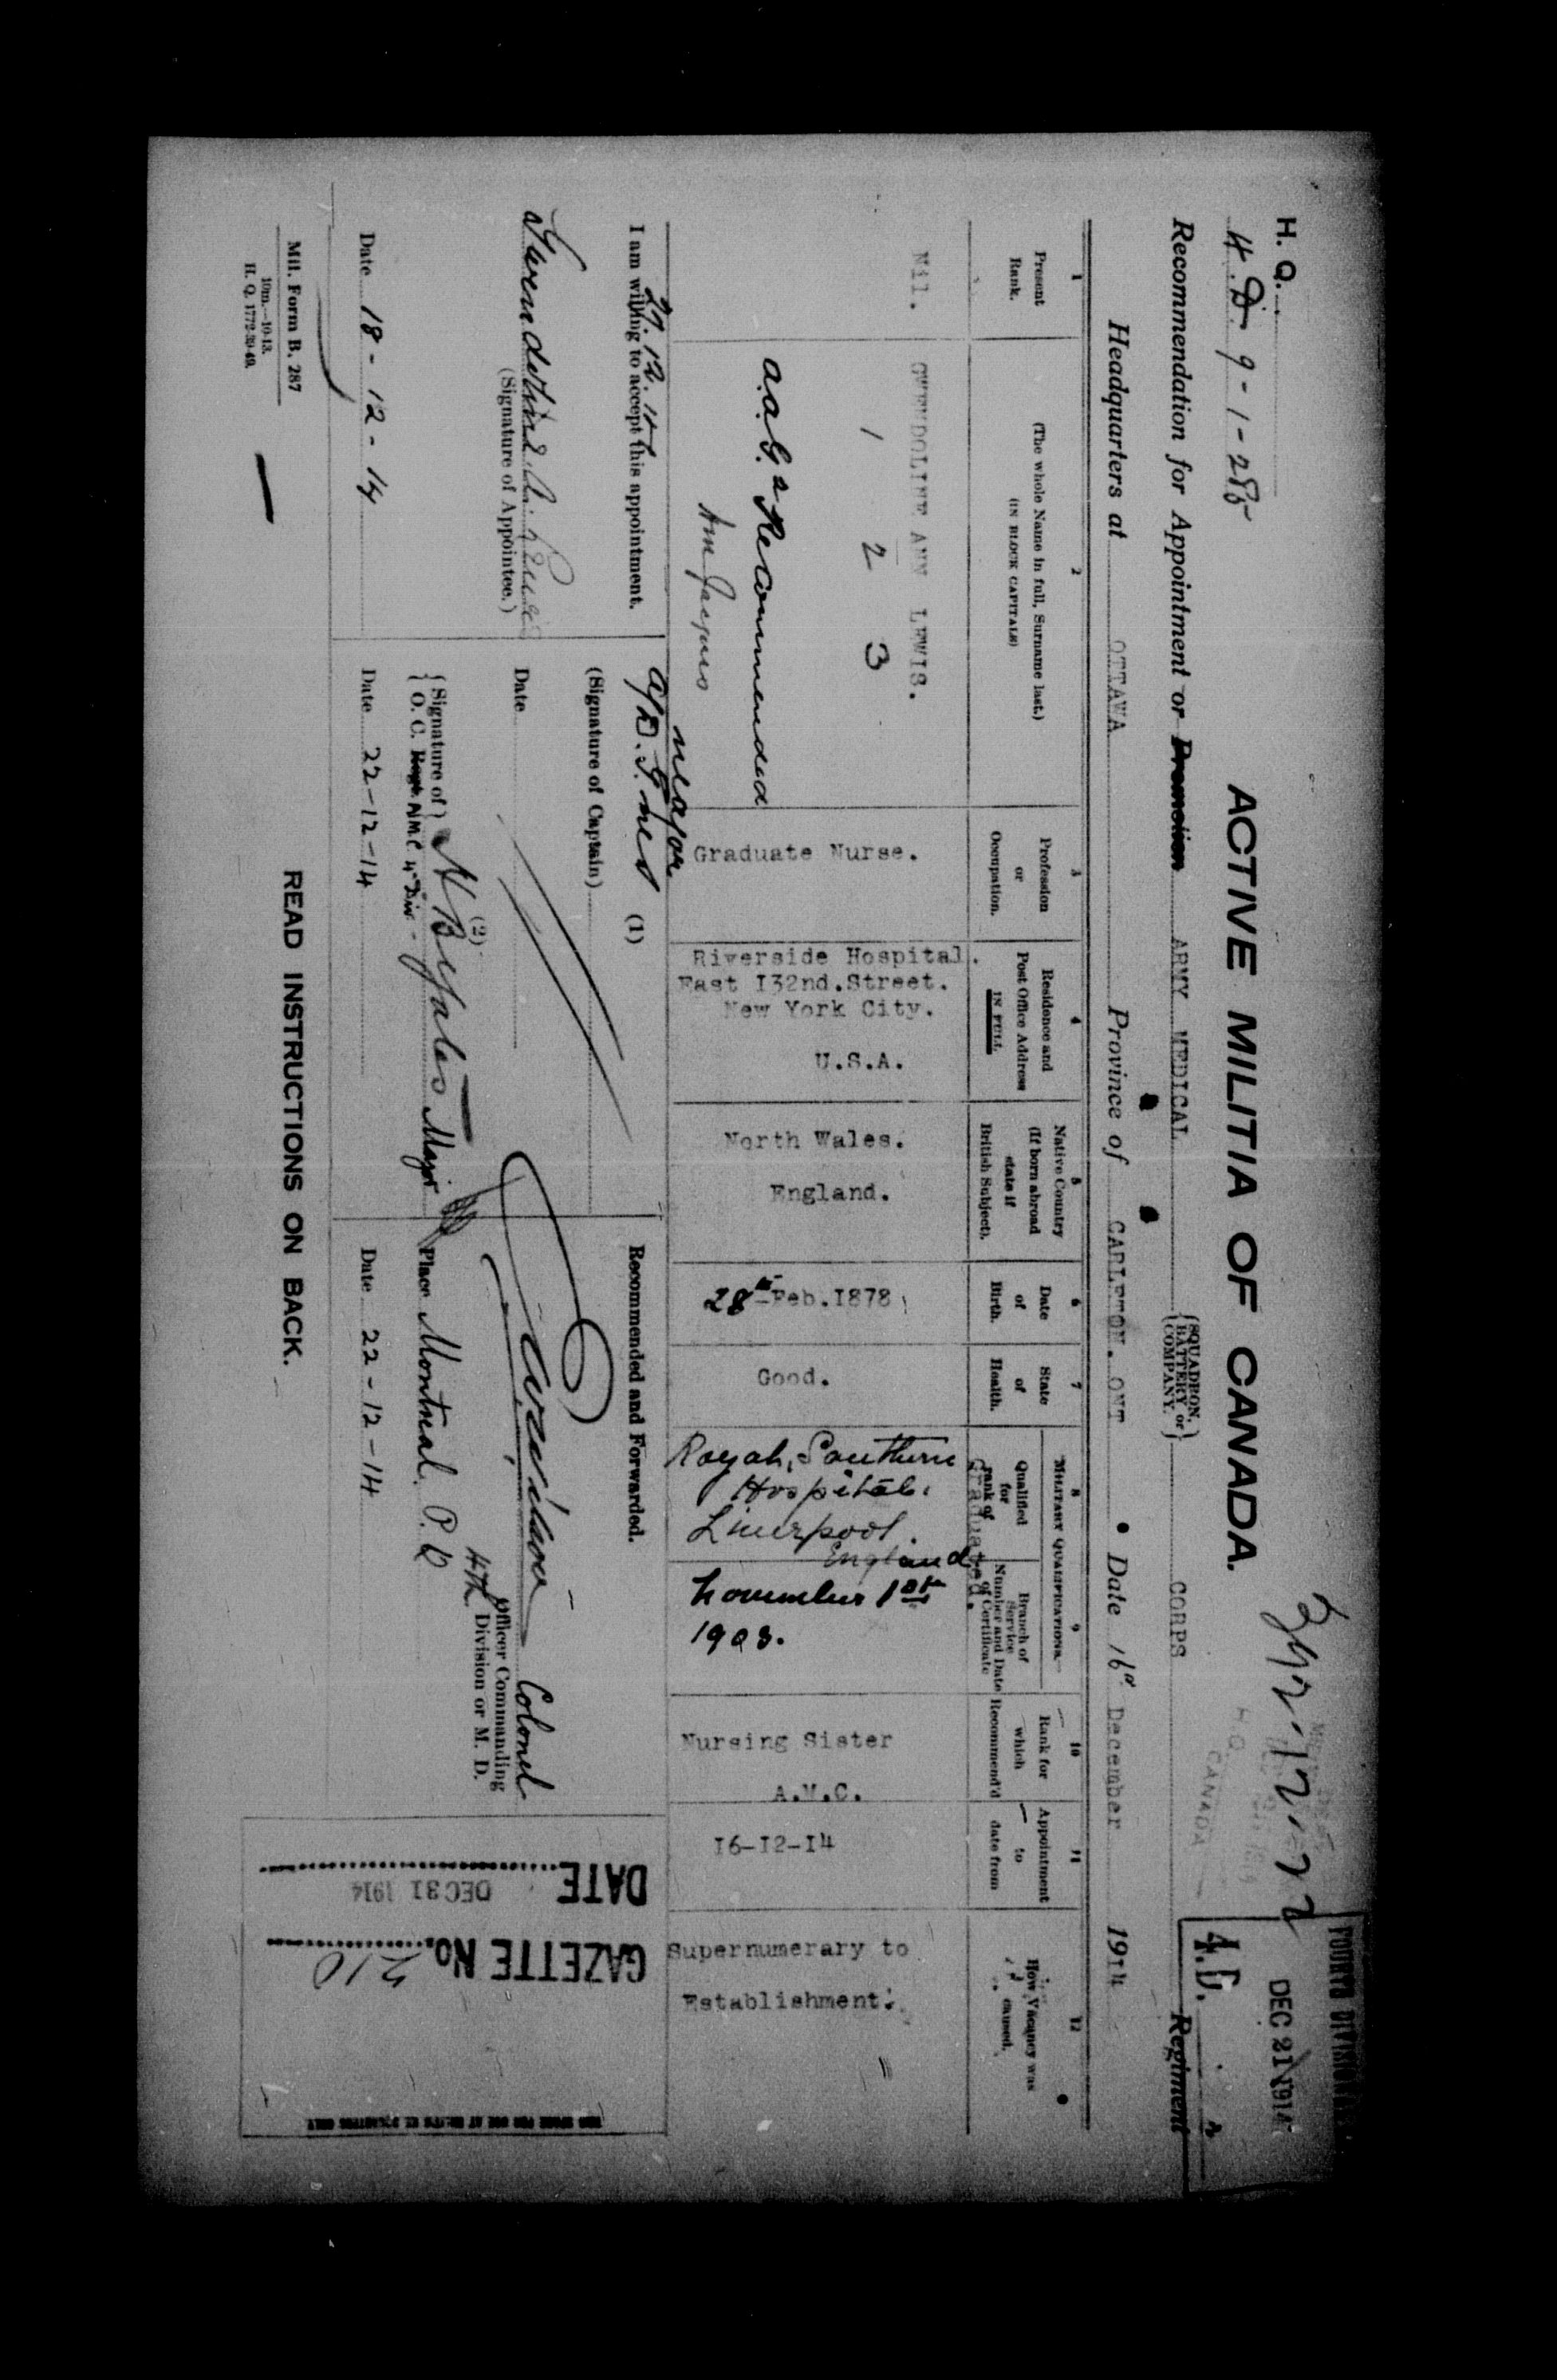 H. Q.
4. D. 9-1-285
ACTIVE MILITIA OF CANADA.
DEC 21 1914
4.D.
Recommendation for Appointment or Promotion ARMY MEDICAL {SQUADRON, BATTERY or COMPANY.} CORPS Regiment
Headquarters at OTTAWA Province of CARLETON. ONT Date 16th December 1914
1
Present
Rank.
2
(The whole Name in full, Surname last.)
(IN BLOCK CAPITALS)
3
Profession
or
Occupation.
4
Residence and
Post Office Address
IN FULL
5
Native Country
(If born abroad
state if
British Subject).
6
Date
of
Birth.
7
State
of
Health.
MILITARY QUALIFICATIONS
8
Qualified
for
rank of
9
Branch of
Service
Number and Date
of Certificate
Graduated.
10
Rank for
which
Recommend'd
11
Appointment
to
date from
12
How Vacancy was
caused.
Nil.
GWENDOLINE ANN LEWIS.
1 2 3
Graduate Nurse.
Riverside Hospital.
East 132nd.Street.
New York City.
U.S.A.
North Wales.
England.
28th Feb.1878
Good.
Royal Southern
Hospital.
Liverpool.
England
November 1st
1903.
Nursing Sister
A.M.C.
16-12-14
Supernumerary to
Establishment.
Recommended
Major
27.12.14
I am willing to accept this appointment.
Gwendoline A. Lewis
(Signature of Appointee.)
Date 18-12-14
(1)
(Signature of Captain)
Date
(2)
{Signature of}
{O. C. Regt. A.M.C. 4th Div.
H B Yates Major
Date 22-12-14
Recommended and Forwarded.
Colonel
Officer Commanding
4th Division or M. D.
Place Montreal. P. Q
Date 22-12-14
DATE DEC 31 1914
GAZETTE No. 210
Mil. Form B. 287
10m.—10-13.
H. Q. 1772-39-49.
READ INSTRUCTIONS ON BACK.